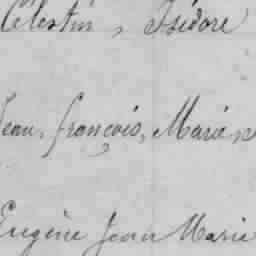 Célestin, Isidore
Jean, françois, Marie
Eugène Jean Marie